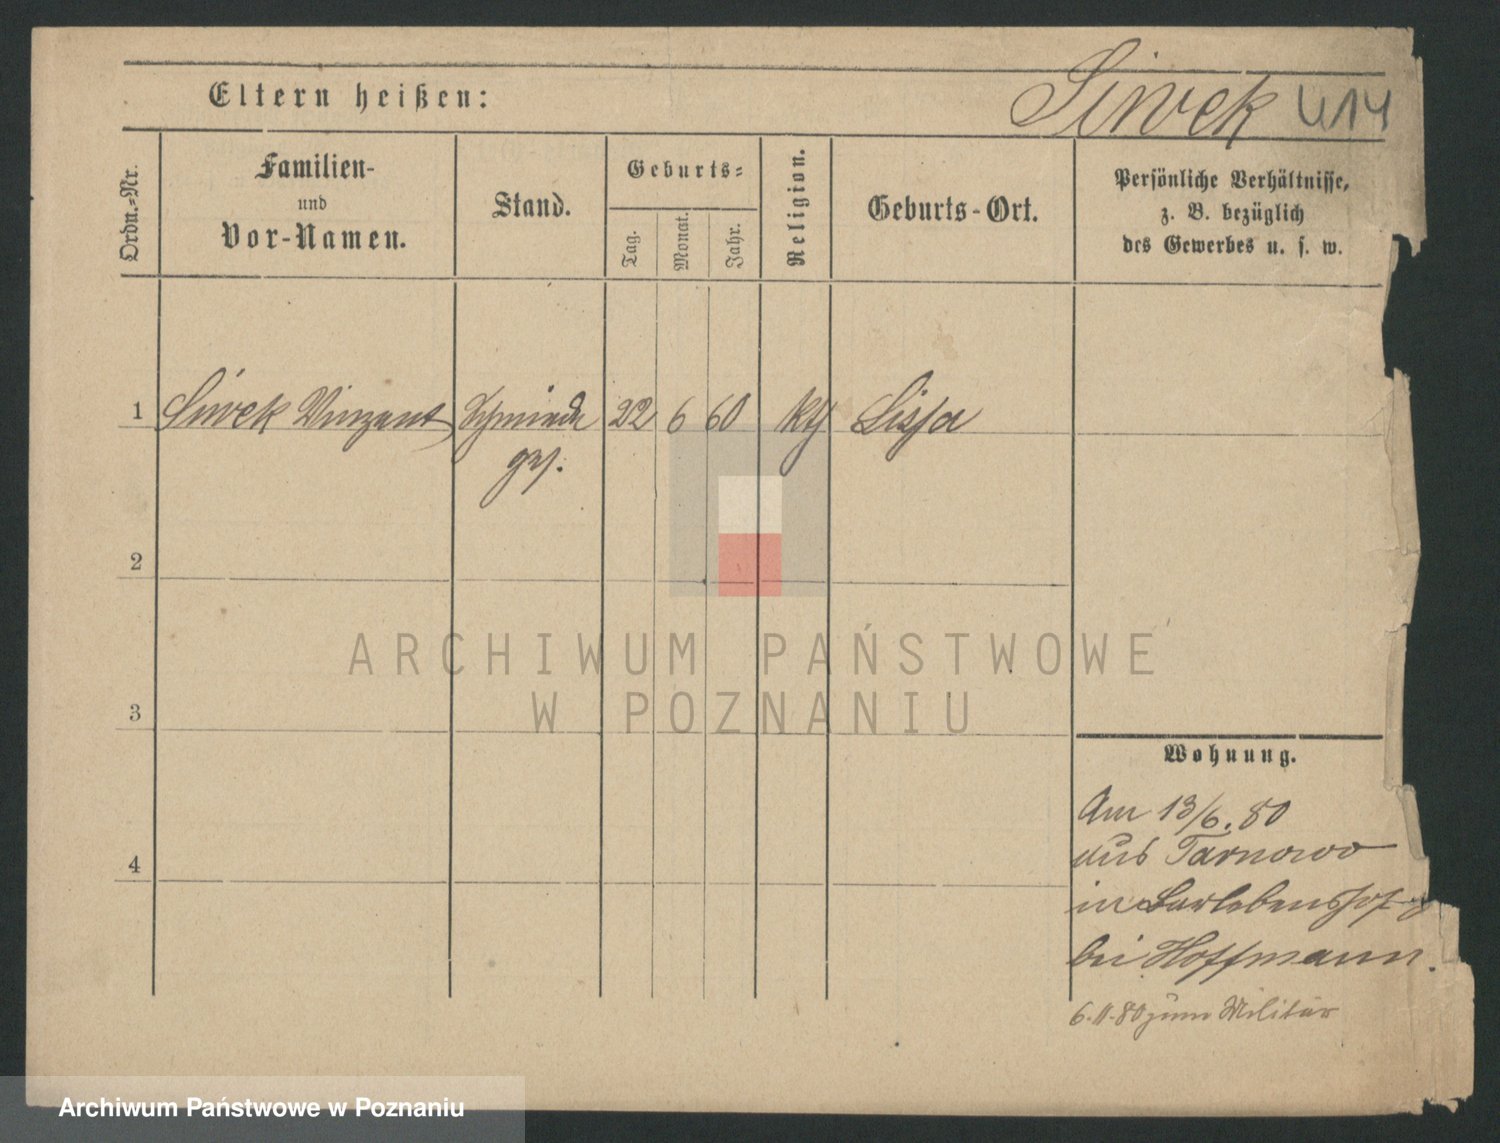 Eltern heißen:
Siwek 414
Ordn.-Nr.
Familien-
und
Vor-Namen.
Stand.
Geburts-
Tag.
Monat.
Jahr.
Religion.
Geburts-Ort.
Persönliche Verhältnisse,
z. B. bezüglich
des Gewerbes u. s. w.
1 Siwek Vinzent Schmiede 22 6 60 kth Lissa
ges.
2
3
4
Wohnung.
Am 13/6. 80
aus Tarnowo
in Bartebenshof
bei Hoffmann.
6.11.80 zum Militär
ARCHIWUM PAŃSTWOWE
W POZNANIU
Archiwum Państwowe w Poznaniu